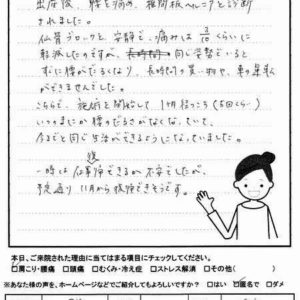 出産後、腰を痛め、椎間板ヘルニアと診断
されました。
仙骨ブロックと、安静で、痛みは3/10くらいに
軽減したのですが、同じ姿勢でいると
すぐに腰がだるくなり、長時間の買い物や、車の運転
ができませんでした。
こちらで、施術を開始して1ヶ月経つころ(5回くらい)
いつのまにか腰のだるさがなくなっていて、
今までと同じ生活ができるようになっていました。
一時は仕事復帰できるか不安でしたが、
予定通り11月から復帰できそうです。
本日、ご来院された理由に当てはまる項目にチェックしてください。
□肩こり・腰痛 □頭痛 □むくみ・冷え症 □ストレス解消 □その他( )
※あなた様の声を、ホームページなどでご紹介してもよろしいですか? □はい □匿名で □ダメ